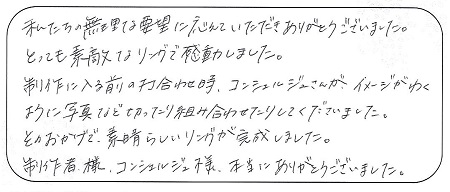 私たちの無理な要望に応えていただきありがとうございました。
とっても素敵なリングで感動しました。
制作に入る前の打合わせ時、コンシェルジュさんが、イメージがわく
ように写真など切ったり組み合わせたりしてくださいました。
そのおかげで、素晴らしいリングが完成しました。
制作者様、コンシェルジュ様、本当にありがとうございました。